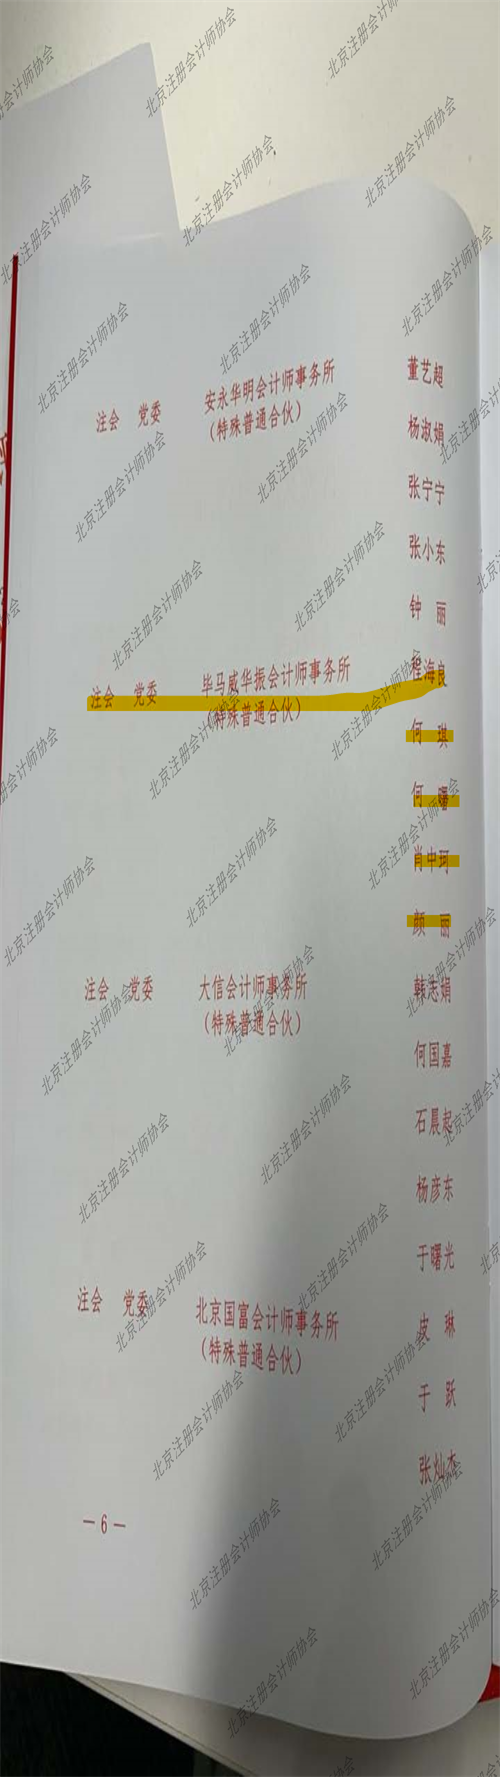 注会 党委 安永华明会计师事务所 董艺超
(特殊普通合伙)
杨淑娟
张宁宁
张小东
钟 丽
注会 党委 毕马威华振会计师事务所 程海良
(特殊普通合伙)
何 琪
何 曙
肖中珂
颜 丽
注会 党委 大信会计师事务所 韩志娟
(特殊普通合伙)
何国嘉
石晨起
杨彦东
于曙光
注会 党委 北京国富会计师事务所 皮 琳
(特殊普通合伙)
于 跃
张灿杰
—6—
北京注册会计师协会